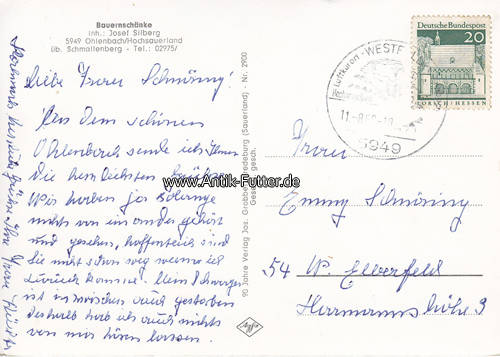 Bauernschänke
Inh.: Josef Silberg
5949 Ohlenbach/Hochsauerland
üb. Schmallenberg - Tel.: 02975/
Liebe Frau Schmöring!
Aus dem schönen
Ohlenbach sende ich Ihnen
Die herzlichsten Grüße
Wir haben ja solange
nichts von einander gehört
und gesehen, hoffentlich sind
Sie nicht schon weg wenn ich
zurück komme. Mein Schwager
ist inzwischen auch gestorben
deshalb hab ich auch nichts
von mir hören lassen.
Nochmals herzliche Grüße Ihre Frau
90 Jahre Verlag Jos. Grobbel, Fredeburg (Sauerland) - Nr. 2900
Gesetzl. gesch.
www.Antik-Futter.de
Deutsche Bundespost
20
LORSCH/HESSEN
Luftkurort
WESTF
5949
Frau
Emmy Schmöring
54 W. Elberfeld
Herrmannshöhe 3